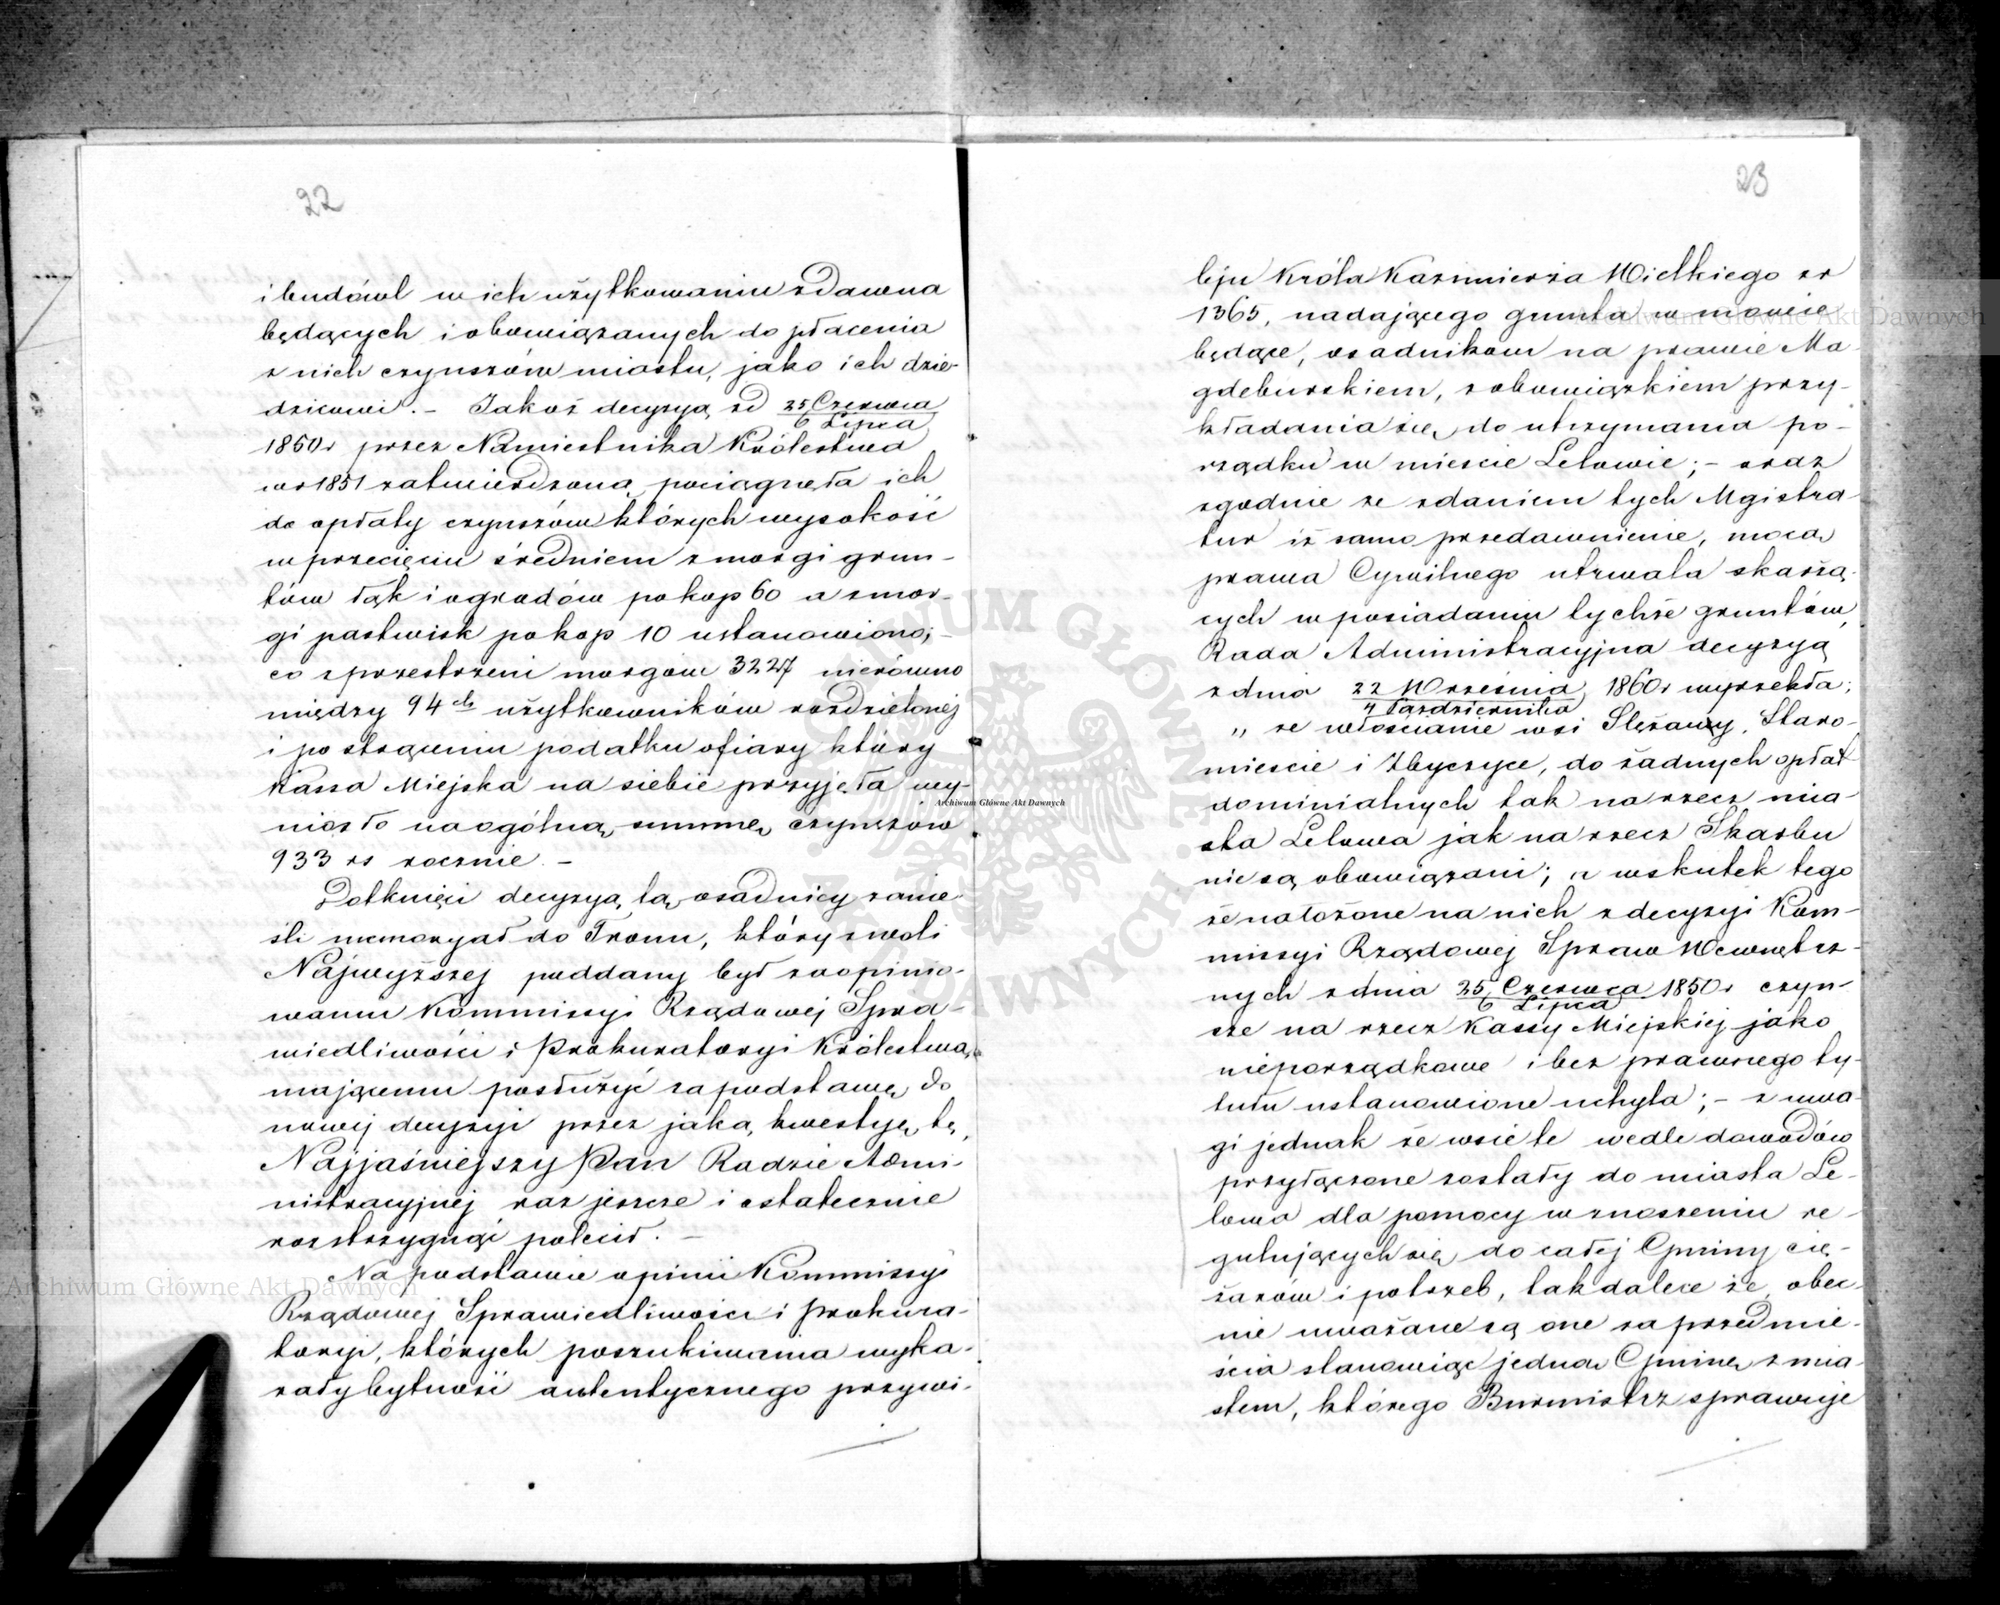 22
i budowl w ich użytkowaniu zdawna
będących i obowiązanych do płacenia
z nich czynszów miastu, jako ich dzie-
dzicowi. – Jakoż decyzyą zd 25 Czerwca
6 Lipca
1850r przez Namiestnika Królestwa
w r 1851 zatwierdzoną, pociągnęła ich
do opłaty czynszów których wysokość
w przecięciu średniem z morgi grun-
tów łąk i ogrodów po kop 60 a z mor-
gi pastwisk po kop 10 ustanowiono; –
co z przestrzeni morgów 3227 nierówno
między 94ch użytkowników rozdzielonej
i po strąceniu podatku ofiary który
Kassa Miejska na siebie przyjęła wy-
niosło na ogólną summę czynszów
933 rs rocznie. –
Dotknięci decyzyą tą osadnicy zanie-
śli memoryał do Tronu, który z woli
Najwyższej poddany był zaopinio-
waniu Kommissyi Rządowej Spra-
wiedliwości i Prokuratoryi Królestwa,
mającemu posłużyć za podstawę do
nowej decyzyi przez jaką kwestyę tę,
Najjaśniejszy Pan Radzie Admi-
nistracyjnej raz jeszcze i ostatecznie
rozstrzygnąć polecił. –
Na podstawie opinii Kommissyi
Rządowej Sprawiedliwości i Prokura-
toryi, których poszukiwania wyka-
zały bytność autentycznego przywi-
23
leju Króla Kazimierza Wielkiego z r
1365, nadającego grunta w mowie
będące, osadnikom na prawie Ma-
gdeburskiem, z obowiązkiem przy-
kładania się do utrzymania po-
rządku w mieście Lelowie; – oraz
zgodnie ze zdaniem tych Magistra-
tur iż samo przedawnienie, mocą
prawa Cywilnego utrwala skarżą-
cych w posiadaniu tychże gruntów,
Rada Administracyjna decyzyą
z dnia 22 Września 1860r wyrzekła;
4 Października
„ że włościanie wsi Ślężany, Staro-
mieście i Zbyczyce, do żadnych opłat
dominialnych tak na rzecz mia-
sta Lelowa jak na rzecz Skarbu
nie są obowiązani; a wskutek tego
że nałożone na nich z decyzyi Kom-
missyi Rządowej Spraw Wewnętrz-
nych z dnia 25 Czerwca 1850r czyn-
6 Lipca
sze na rzecz Kassy Miejskiej jako
nieporządkowe i bez prawnego ty-
tułu ustanowione uchyla; – z uwa-
gi jednak że wsie te wedle dowodów
przyłączone zostały do miasta Le-
lowa dla pomocy w znoszeniu re-
gulujących się do całej Gminy cię-
żarów i potrzeb, tak dalece że obec-
nie uważane są one za przedmie-
ścia stanowiąc jedną Gminę z mia-
stem, którego Burmistrz sprawuje
Archiwum Główne Akt Dawnych
Archiwum Główne Akt Dawnych
Archiwum Główne Akt Dawnych
ARCHIWUM GŁÓWNE AKT DAWNYCH